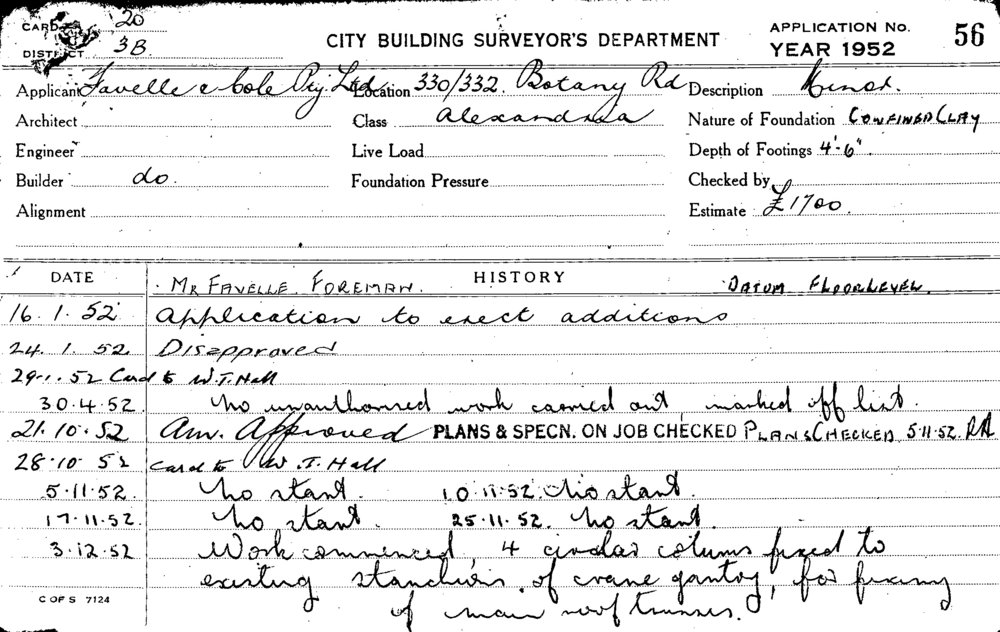 CARD 20
DISTRICT 3B
CITY BUILDING SURVEYOR'S DEPARTMENT
APPLICATION No. 56
YEAR 1952
Applicant Favelle & Cole Pty Ltd Location 330/332. Botany Rd Description Minor.
Architect Class Alexandria Nature of Foundation CONFINED CLAY
Engineer Live Load Depth of Footings 4'-6".
Builder do. Foundation Pressure Checked by
Alignment Estimate £1700.
DATE HISTORY
MR FAVELLE. FOREMAN. DATUM FLOORLEVEL.
16.1.52 Application to erect additions
24.1.52 Disapproved
29.1.52 Card to W.T. Hall
30.4.52. No unauthorised work carried out, marked off list.
21.10.52 Am. Approved PLANS & SPECN. ON JOB CHECKED PLANS CHECKED 5.11.52. RR
28.10.52 Card to W.T. Hall
5.11.52. No start. 10.11.52. No start.
17.11.52. No start. 25.11.52. No start.
3.12.52 Work commenced, 4 circular colums fixed to
existing stanchions of crane gantry, for fixing
of main roof trusses.
C OF S 7124